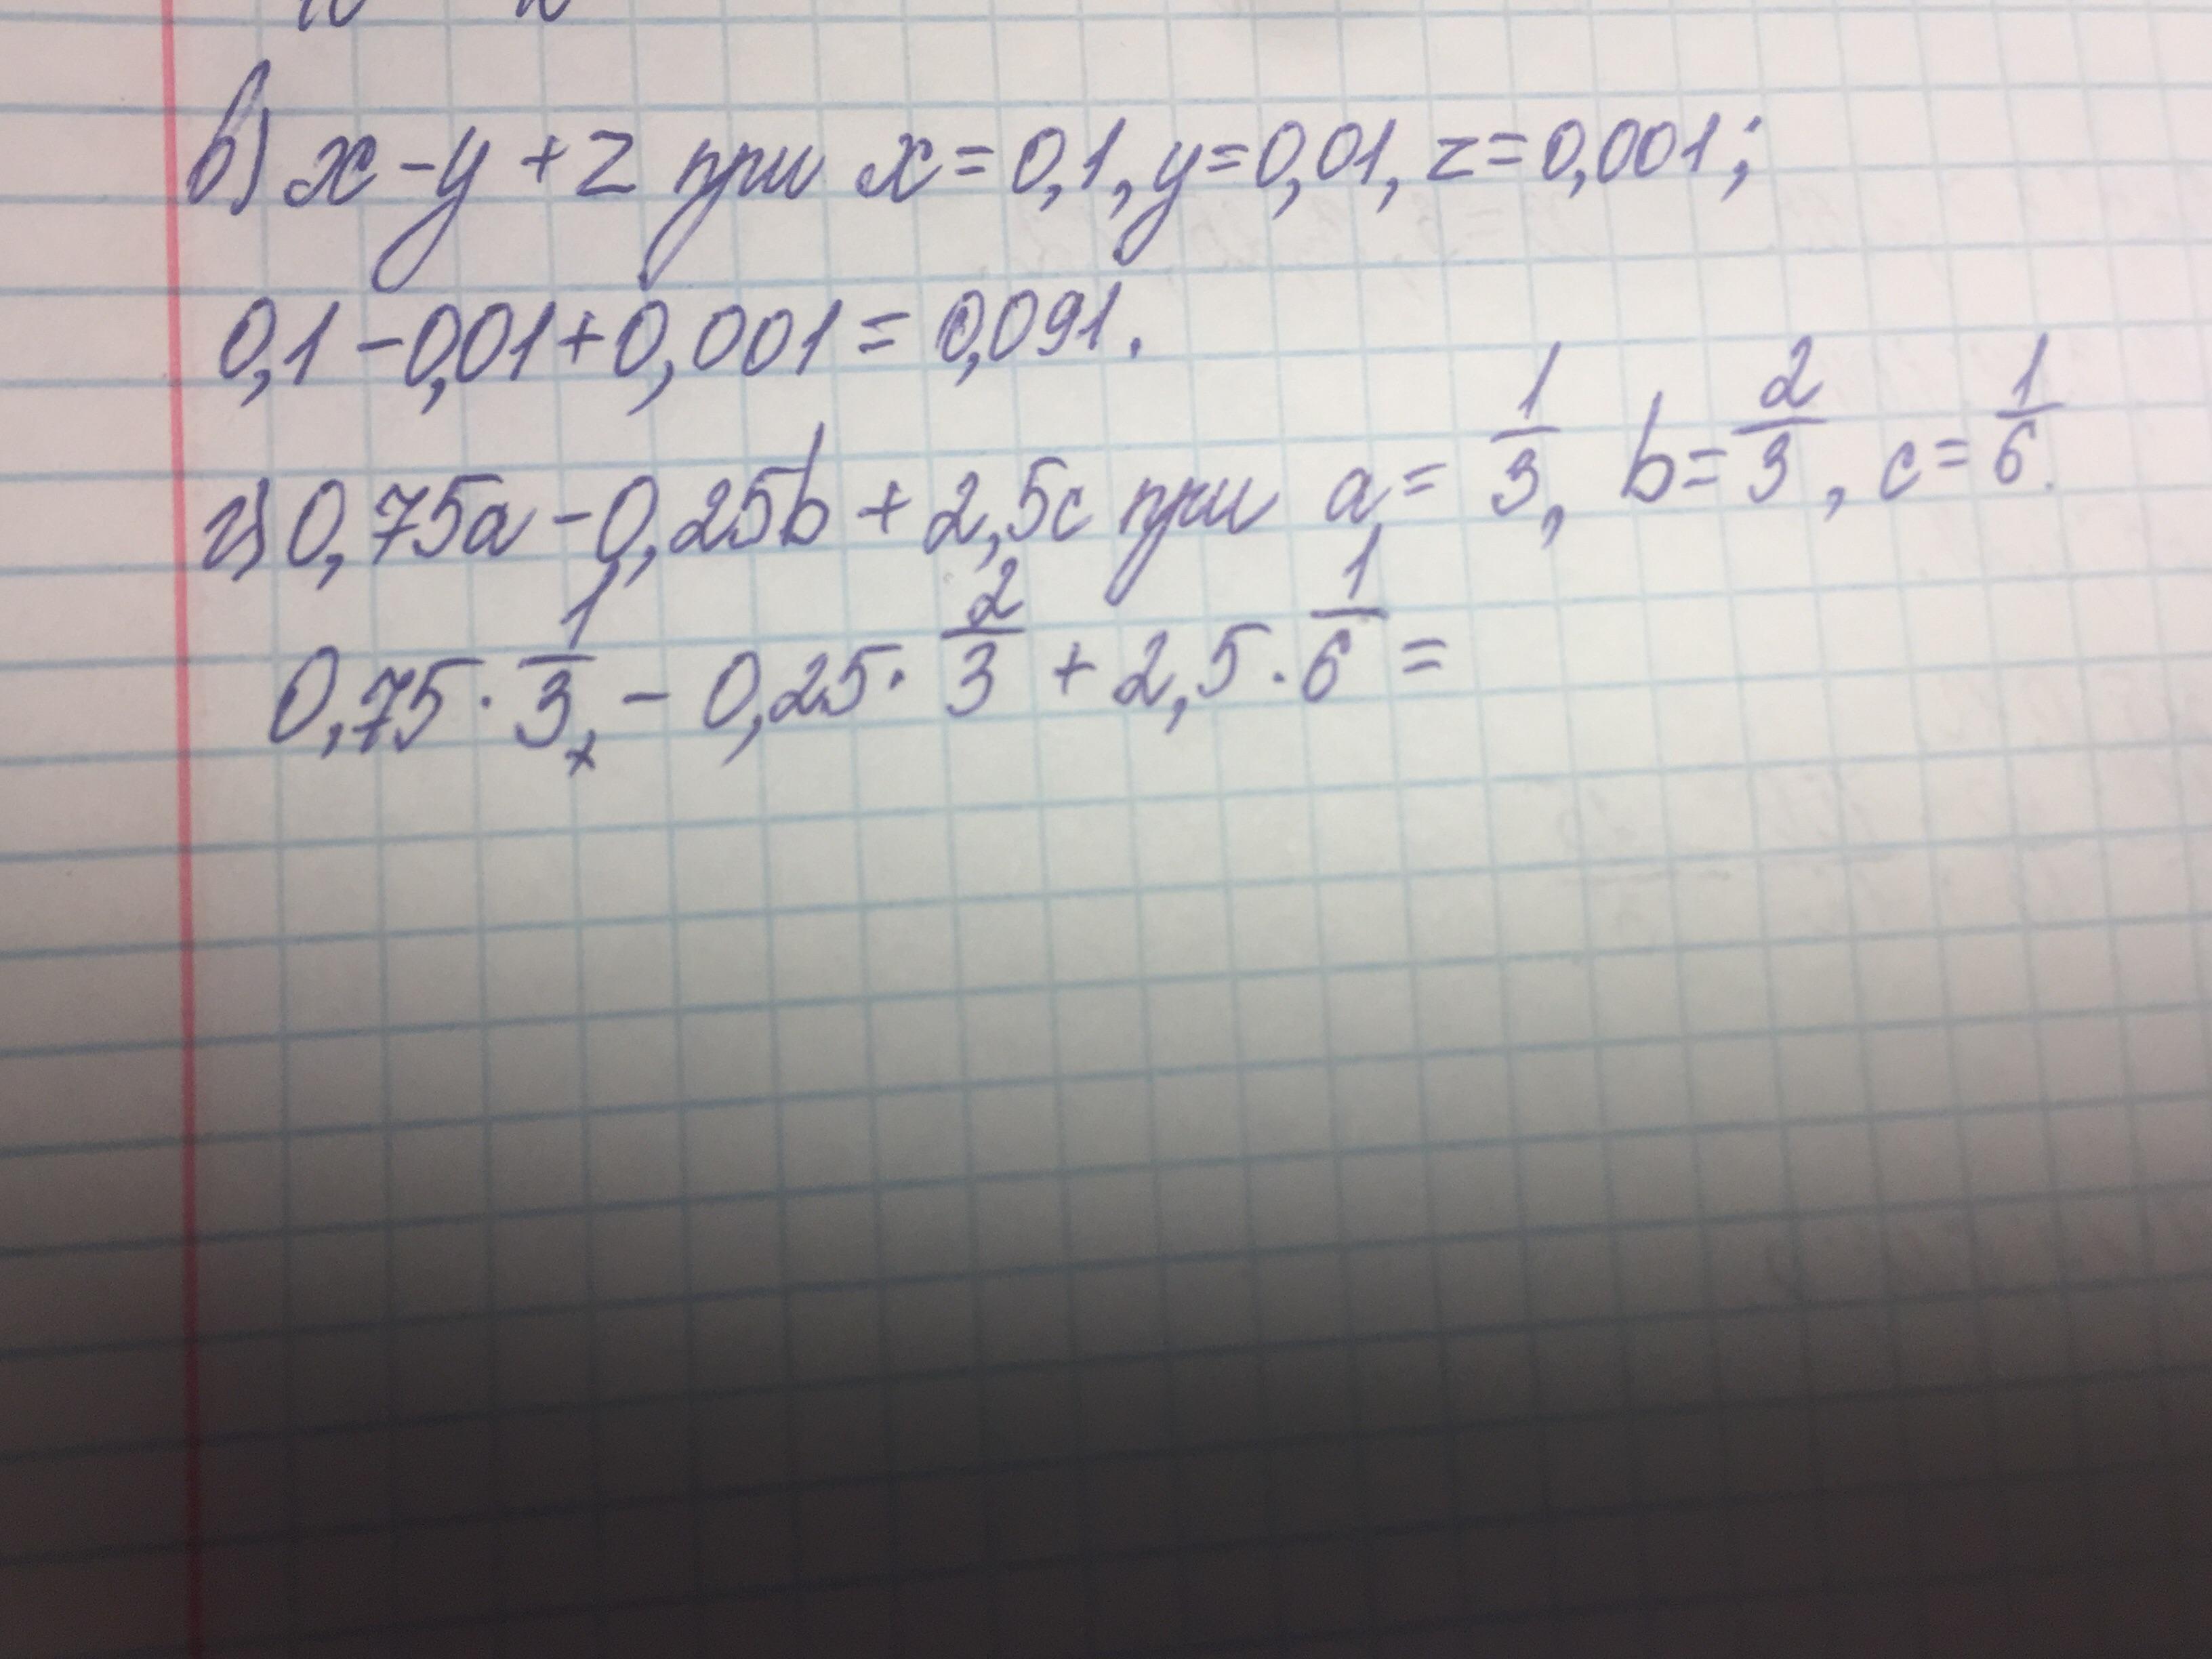 в) x - y + z при x = 0,1, y = 0,01, z = 0,001;
0,1 - 0,01 + 0,001 = 0,091.
г) 0,75a - 0,25b + 2,5c при a = 1/3, b = 2/3, c = 1/6.
0,75 · 1/3 - 0,25 · 2/3 + 2,5 · 1/6 =